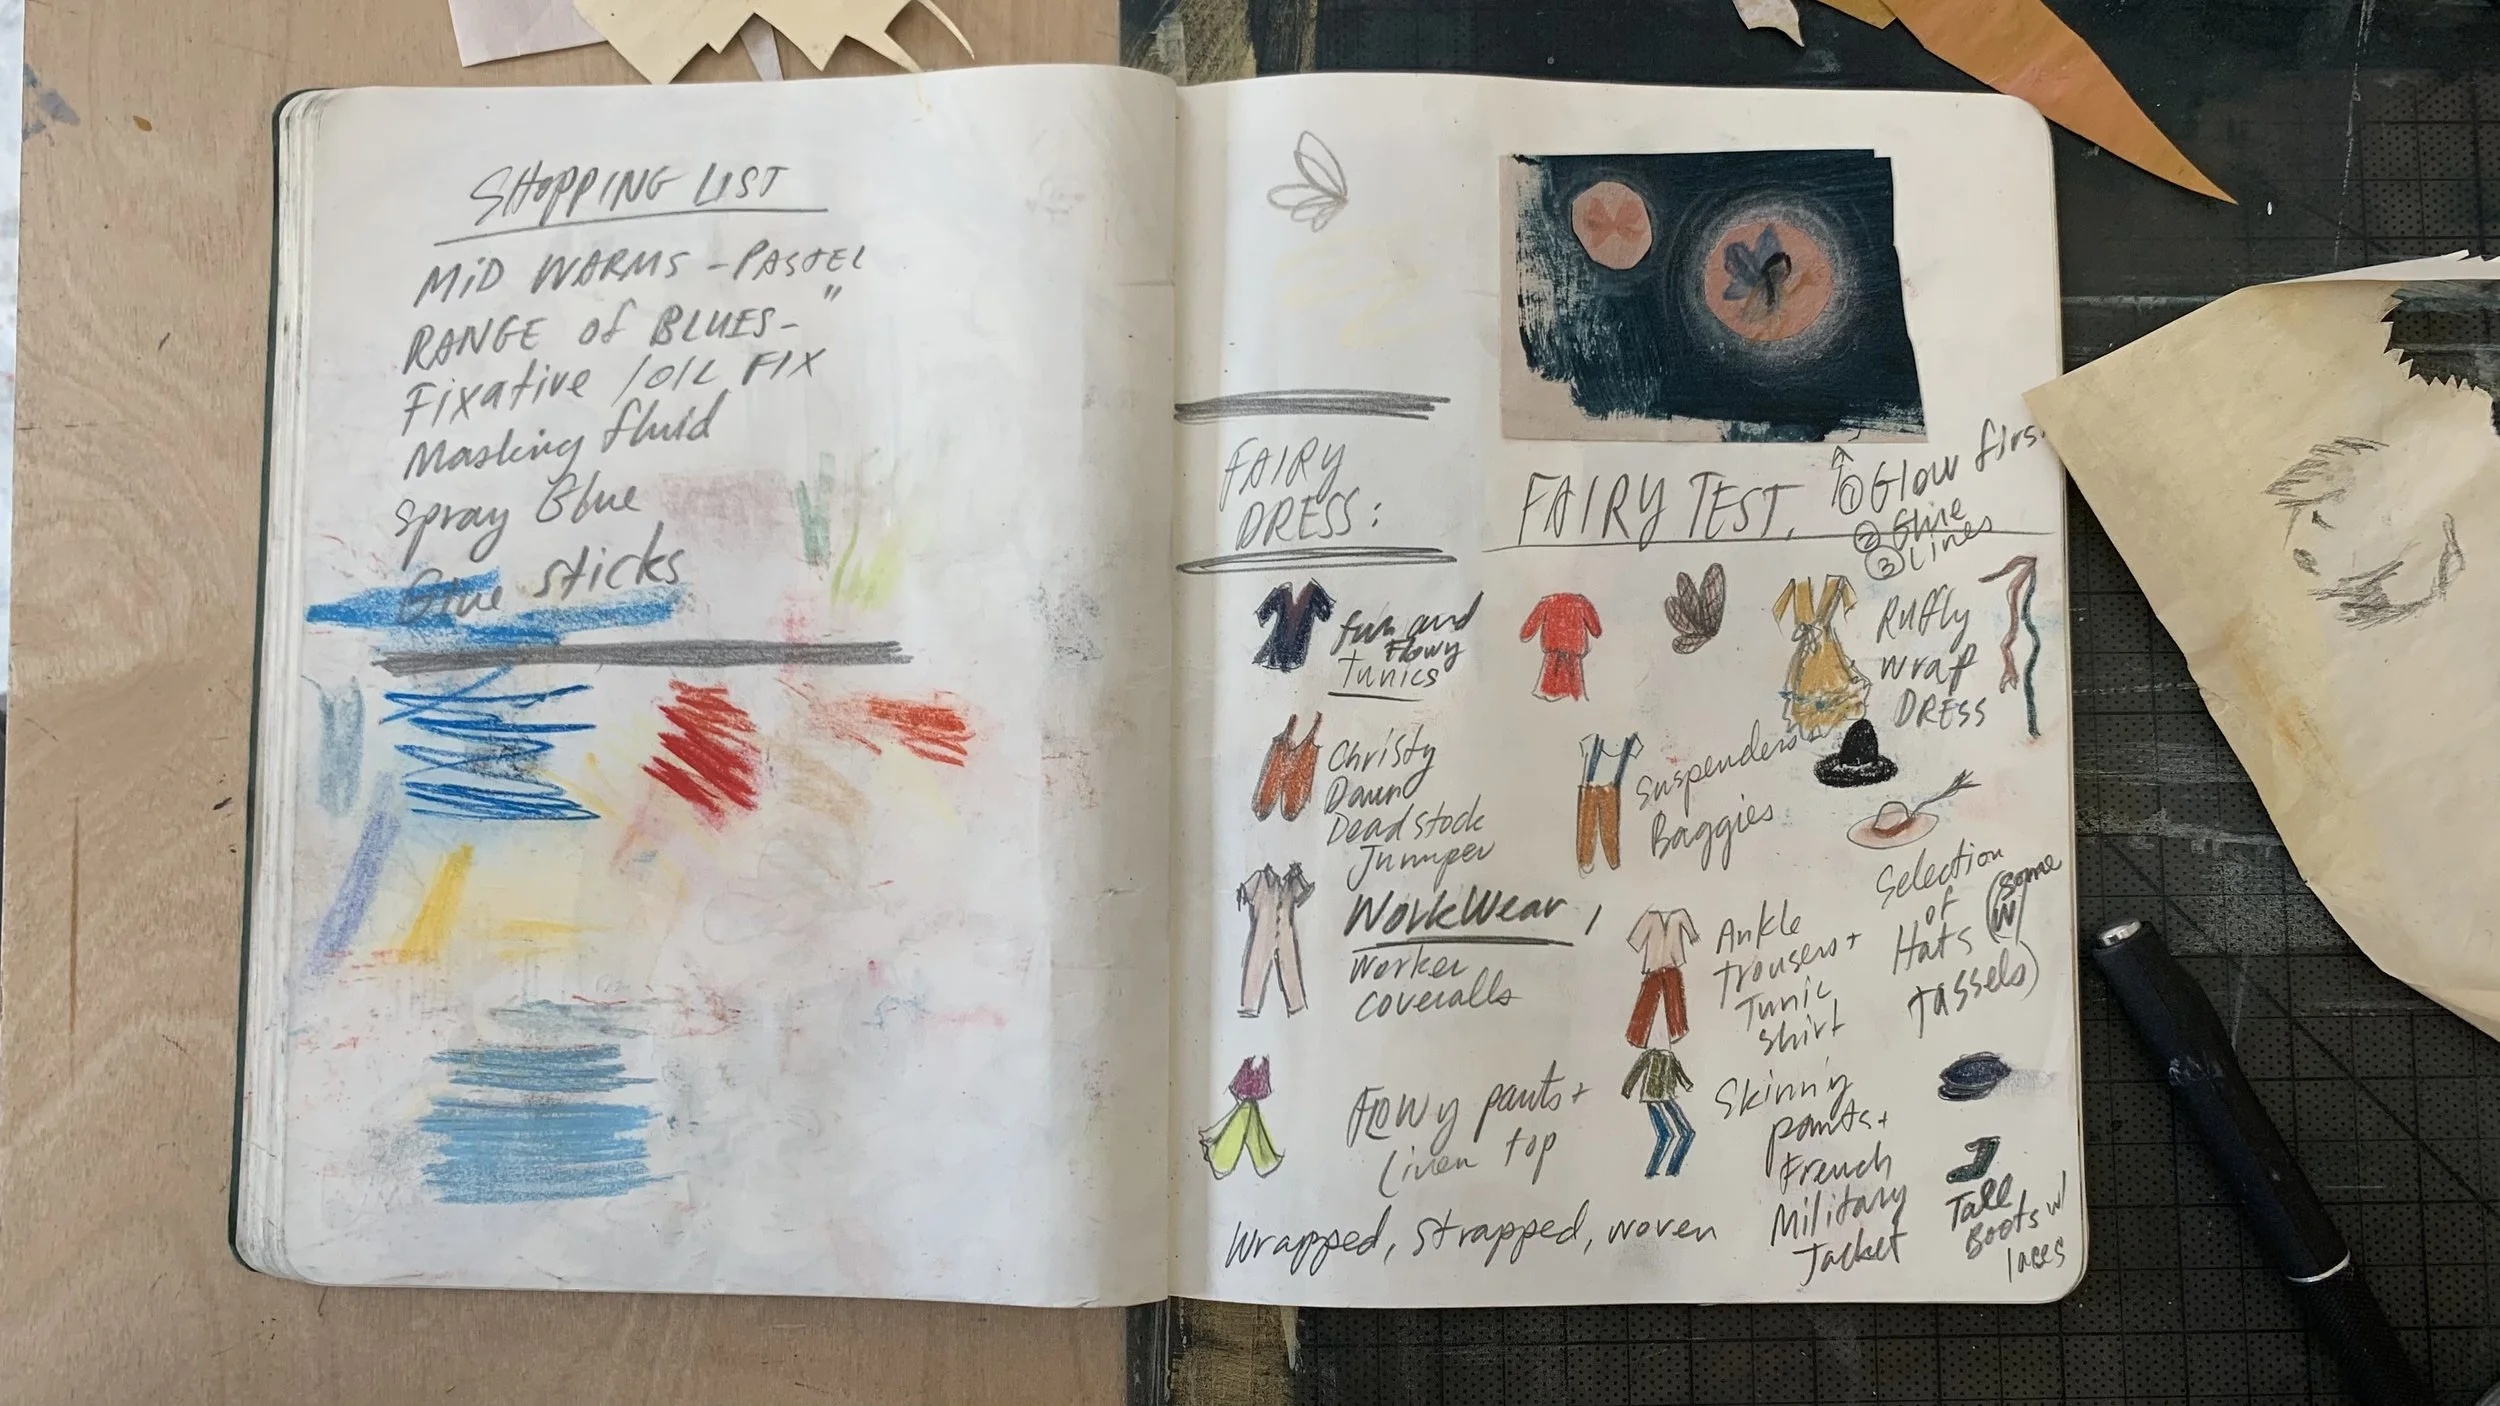 SHOPPING LIST
MiD WARMS - PASTEL
RANGE of BLUES - "
Fixative / OIL FIX
Masking fluid
Spray Glue
Glue sticks
FAIRY
DRESS:
FAIRY TEST.
① Glow first
② Glue
③ Lines
fun and
Flowy
Tunics
Christy
Dawn
Deadstock
Jumper
WorkWear,
Worker
coveralls
Flowy pants +
Linen top
Wrapped, Strapped, woven
Ruffly
wrap
DRESS
Suspenders
Baggies
Selection
of
Hats (some
w/
tassels)
Ankle
trousers +
Tunic
shirt
Skinny
pants +
French
Military
Jacket
Tall
Boots w/
laces